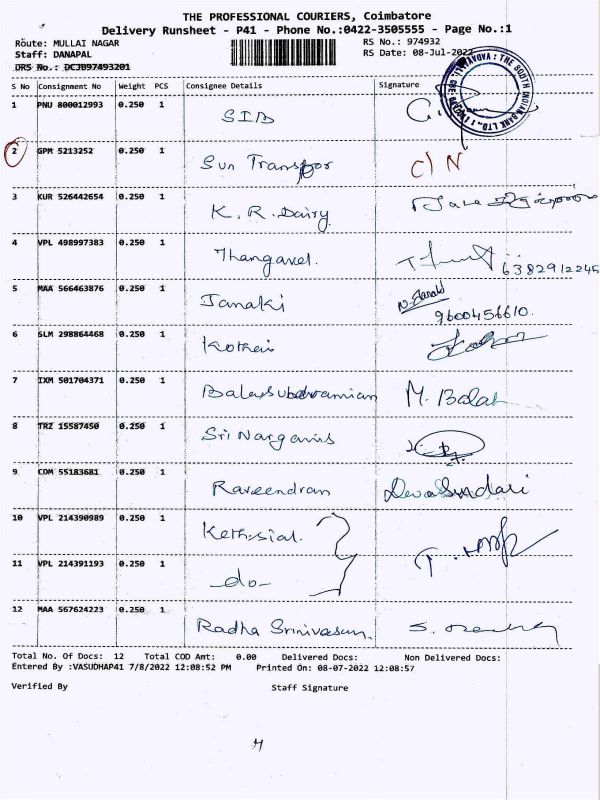 THE PROFESSIONAL COURIERS, Coimbatore
Delivery Runsheet - P41 - Phone No.:0422-3505555 - Page No.:1
Route: MULLAI NAGAR RS No.: 974932
Staff: DANAPAL RS Date: 08-Jul-2022
DRS No.: DCJB97493201
S No Consignment No Weight PCS Consignee Details Signature
1 PNU 800012993 0.250 1 SIB
2 GPM 5213252 0.250 1 Sun Transpor C/N
3 KUR 526442654 0.250 1 K. R. Dairy
4 VPL 498997383 0.250 1 Thangavel. 6382912245
5 MAA 566463876 0.250 1 Janaki N. Janaki
9600456610.
6 SLM 298864468 0.250 1
7 IXM 501704371 0.250 1 M. Balak
8 TRZ 15587450 0.250 1 Sri
9 COM 55183681 0.250 1 Raveendran
10 VPL 214390989 0.250 1
11 VPL 214391193 0.250 1 -do-
12 MAA 567624223 0.250 1 Radha Srinivasan.
Total No. Of Docs: 12 Total COD Amt: 0.00 Delivered Docs: Non Delivered Docs:
Entered By :VASUDHAP41 7/8/2022 12:08:52 PM Printed On: 08-07-2022 12:08:57
Verified By Staff Signature